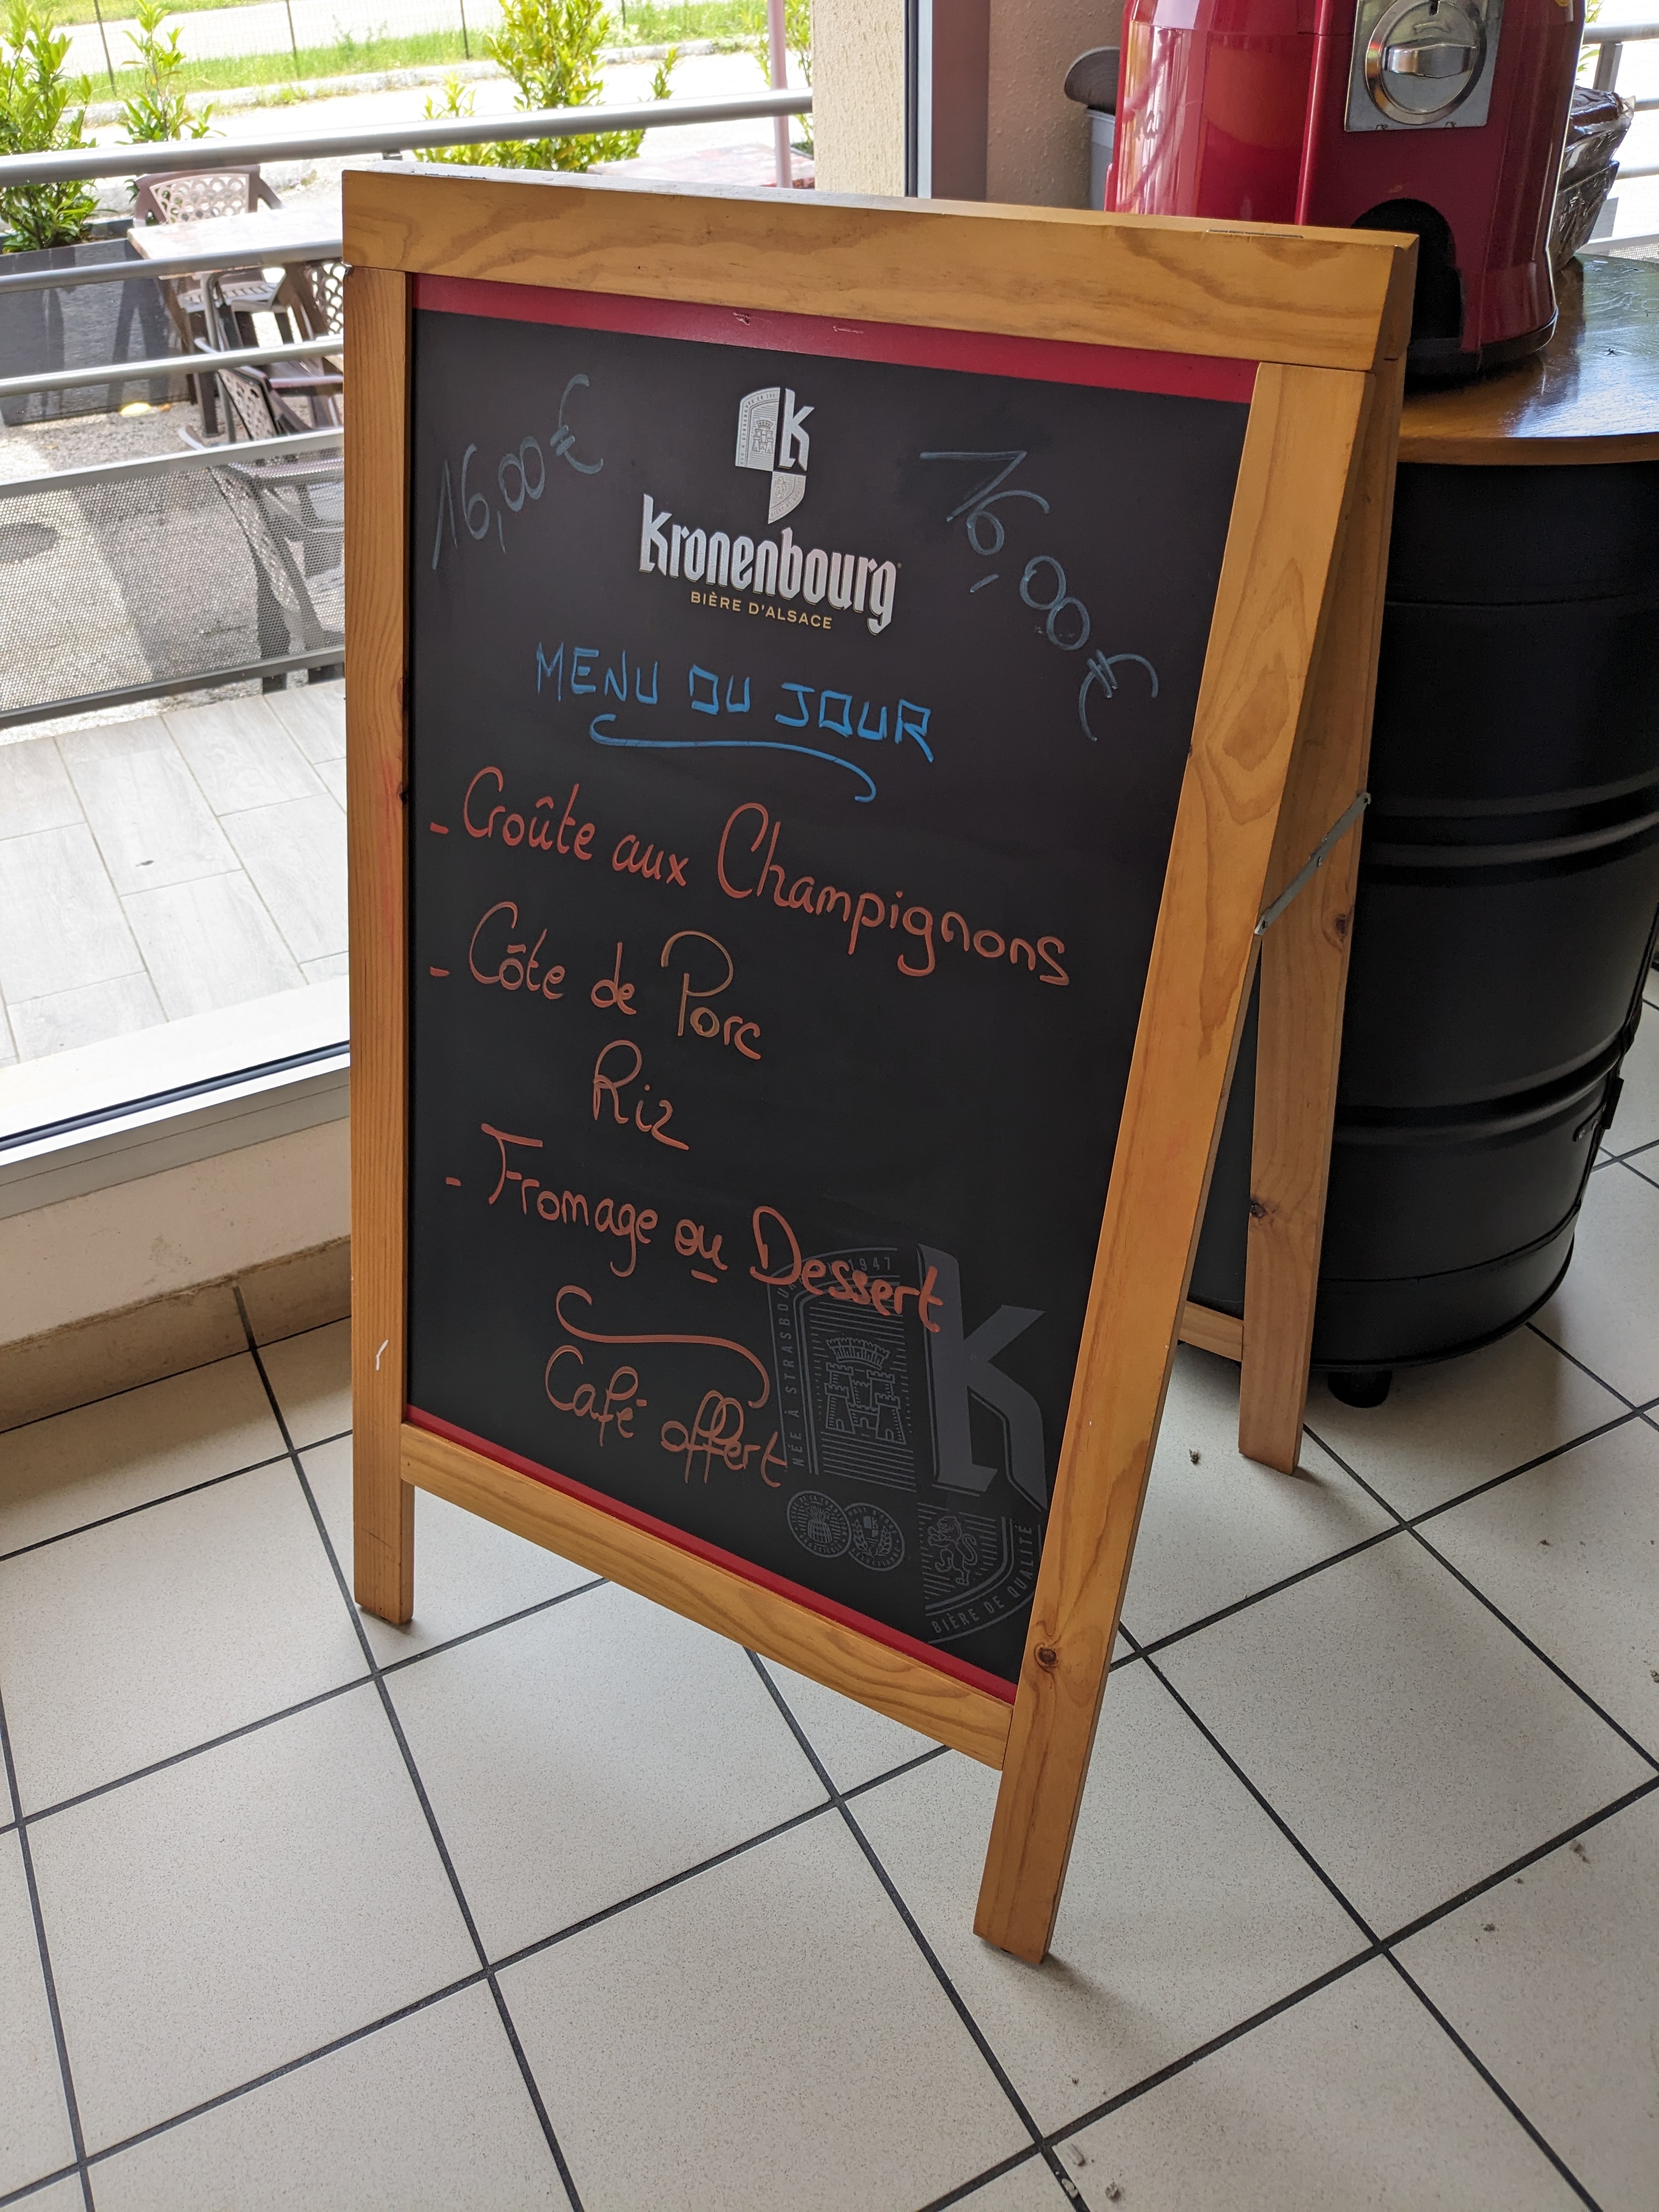 16,00€
16,00€
K
Kronenbourg
BIÈRE D'ALSACE
MENU DU JOUR
- Croûte aux Champignons
- Côte de Porc
Riz
- Fromage ou Dessert
Café offert
NÉE À STRASBOU
1947
K
BIÈRE DE QUALITÉ